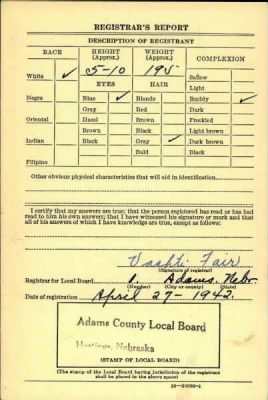 REGISTRAR'S REPORT
DESCRIPTION OF REGISTRANT
RACE HEIGHT (Approx.) WEIGHT (Approx.) COMPLEXION
White ✓ 5-10 195 Sallow
Light
EYES HAIR
Negro Blue ✓ Blonde Ruddy ✓
Gray Red Dark
Oriental Hazel Brown Freckled
Brown Black Light brown
Indian Black Gray ✓ Dark brown
Bald Black
Filipino
Other obvious physical characteristics that will aid in identification
I certify that my answers are true; that the person registered has read or has had
read to him his own answers; that I have witnessed his signature or mark and that
all of his answers of which I have knowledge are true, except as follows:
Vashti Fair
(Signature of registrar)
Registrar for Local Board 1. Adams, Nebr.
(Number) (City or county) (State)
Date of registration April 27-1942.
Adams County Local Board
Hastings, Nebraska
(STAMP OF LOCAL BOARD)
(The stamp of the Local Board having jurisdiction of the registrant
shall be placed in the above space)